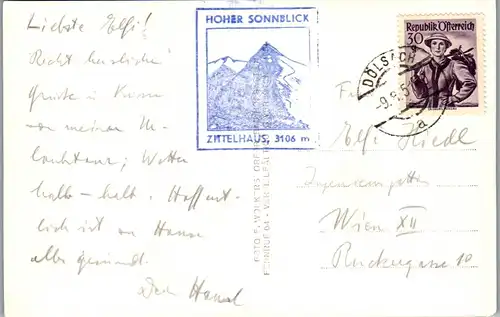 Liebste Elfi!
Recht herzliche
Grüße u. Küsse
von meiner Ur-
laubstour; Wetter
halb-halb. Hoffent-
lich ist zu Hause
alles gesund.
Dein Hansl
HOHER SONNBLICK
ZITTELHAUS, 3106 m
30 Republik Österreich
DÖLSACH
a
Elfi Riedl
Wien XII
Ruckergasse 10